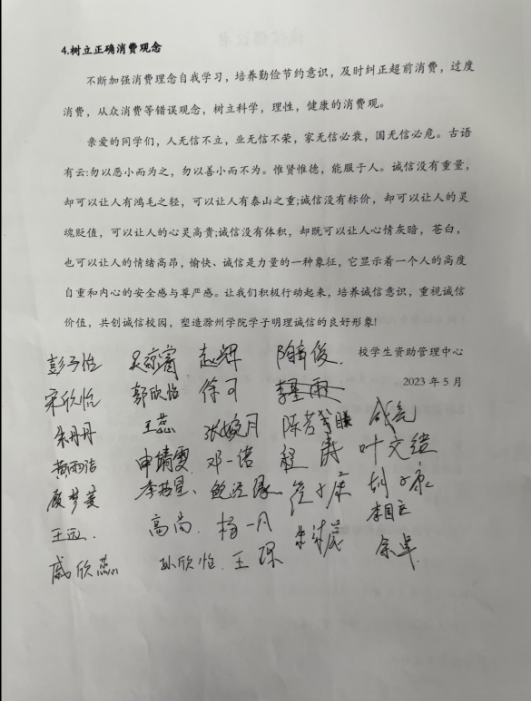 4.树立正确消费观念
不断加强消费理念自我学习，培养勤俭节约意识，及时纠正超前消费，过度
消费，从众消费等错误观念，树立科学，理性，健康的消费观。
亲爱的同学们，人无信不立，业无信不荣，家无信必衰，国无信必危。古语
有云:勿以恶小而为之，勿以善小而不为。惟贤惟德，能服于人。诚信没有重量，
却可以让人有鸿毛之轻，可以让人有泰山之重;诚信没有标价，却可以让人的灵
魂贬值，可以让人的心灵高贵;诚信没有体积，却既可以让人心情灰暗，苍白，
也可以让人的情绪高昂，愉快、诚信是力量的一种象征，它显示着一个人的高度
自重和内心的安全感与尊严感。让我们积极行动起来，培养诚信意识，重视诚信
价值，共创诚信校园，塑造滁州学院学子明理诚信的良好形象!
校学生资助管理中心
2023年5月
彭子怡 赵辉
宋欣怡 郭欣怡 徐可
朱丹丹 王蕊
黄雨洁 申婧雯 邓一诺 程 叶文
胡子康
高尚 杨一凡
戚欣蕊 孙欣怡 王琛 余卓